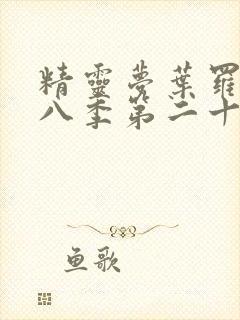 精靈夢葉羅
八季第二十
鱼歌